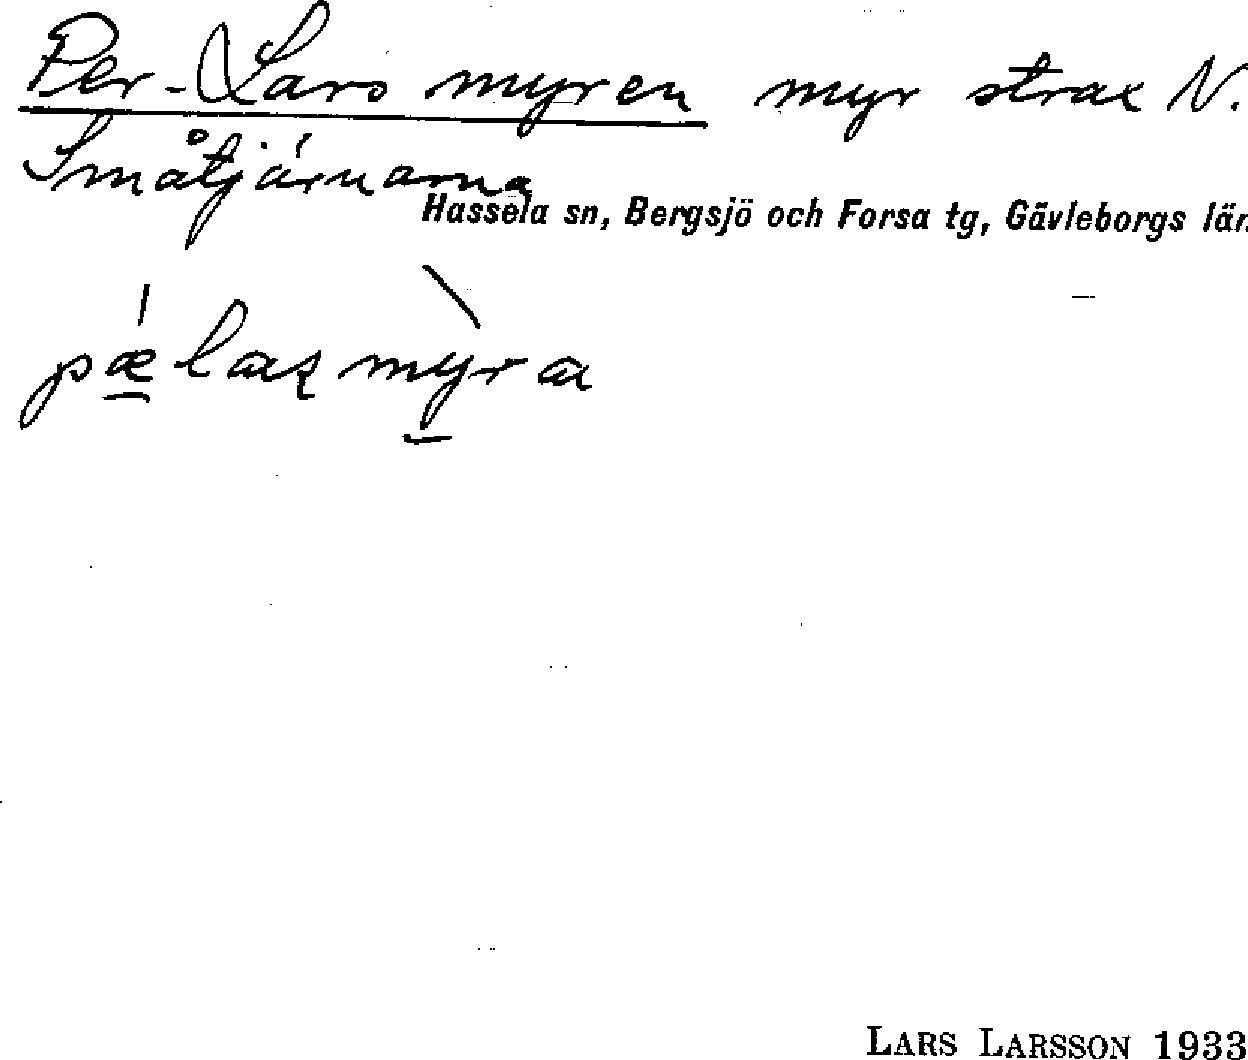 Per-Lars myren myr strax N.
Småtjärnarna
Hassela sn, Bergsjö och Forsa tg, Gävleborgs län
LARS LARSSON 1933